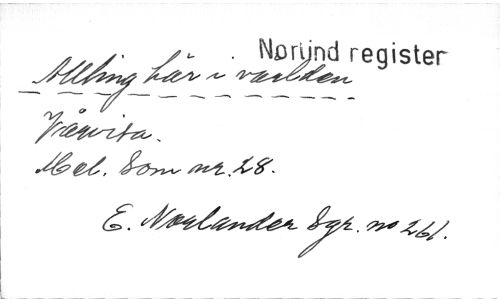 Norlind register
Allting här i världen
Vårvisa.
Mel. Som nr. 28.
E. Norlander Sgr. no 261.